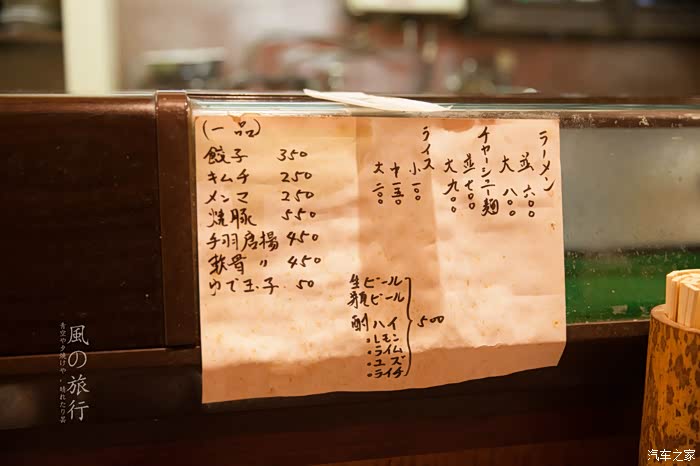 (一品)
餃子 350
キムチ 250
メンマ 250
焼豚 550
手羽唐揚 450
軟骨 〃 450
ゆで玉子 50
ラーメン
並 六〇〇
大 八〇〇
チャーシュー麺
並 七〇〇
大 九〇〇
ライス
小 一〇〇
中 一五〇
大 二〇〇
生ビール
瓶ビール
酎ハイ 500
。レモン
。ライム
。ユズ
。ライチ
風の旅行
青空や夕焼けや、晴れたり
汽车之家